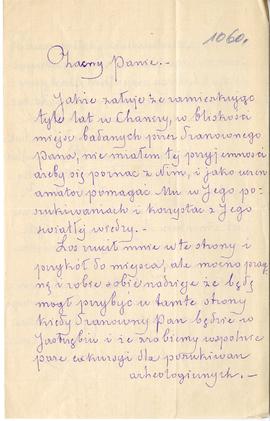 1060.
Zacny Panie. –
Jakże żałuję że zamieszkując
tyle lat w Chancry, w bliskości
miejsc badanych przez Szanownego
Pana, nie miałem tej przyjemności
ażeby się poznać z Nim, i jako
amator pomagać Mu w Jego po-
szukiwaniach i korzystać z Jego
światłej wiedzy. –
Los rzucił mnie w te strony i
przykuł do miejsca, ale mocno prag-
nę i robię sobie nadzieję że będę
mógł przybyć w tamte strony
kiedy Szanowny Pan będzie w
i że zrobiemy wspólnie
parę exkursyi dla poszukiwań
archeologicznych. –